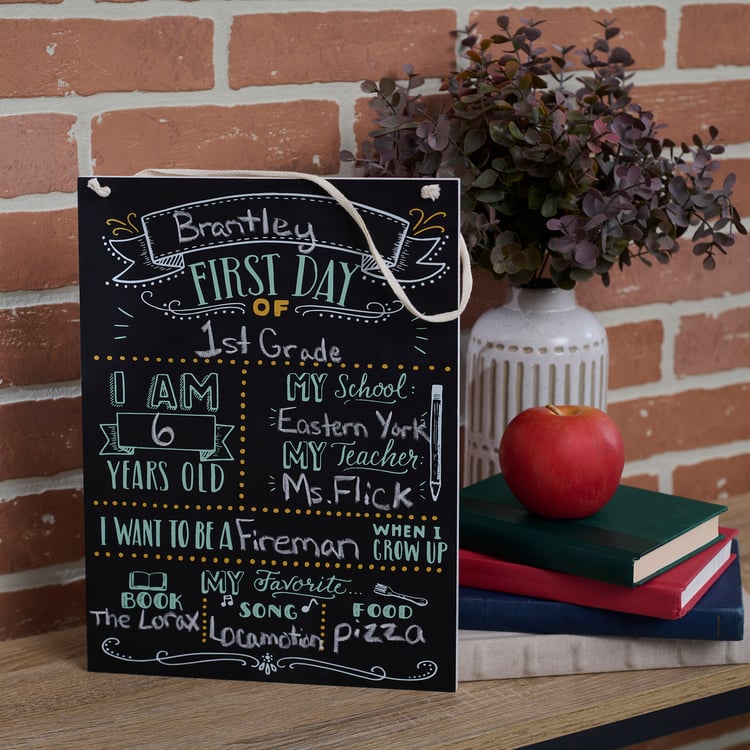 Brantley
FIRST DAY
OF
1st Grade
I AM
6
YEARS OLD
MY School:
Eastern York
MY Teacher:
Ms. Flick
I WANT TO BE A Fireman WHEN I GROW UP
MY Favorite...
BOOK
The Lorax
SONG
Locamotion
FOOD
pizza